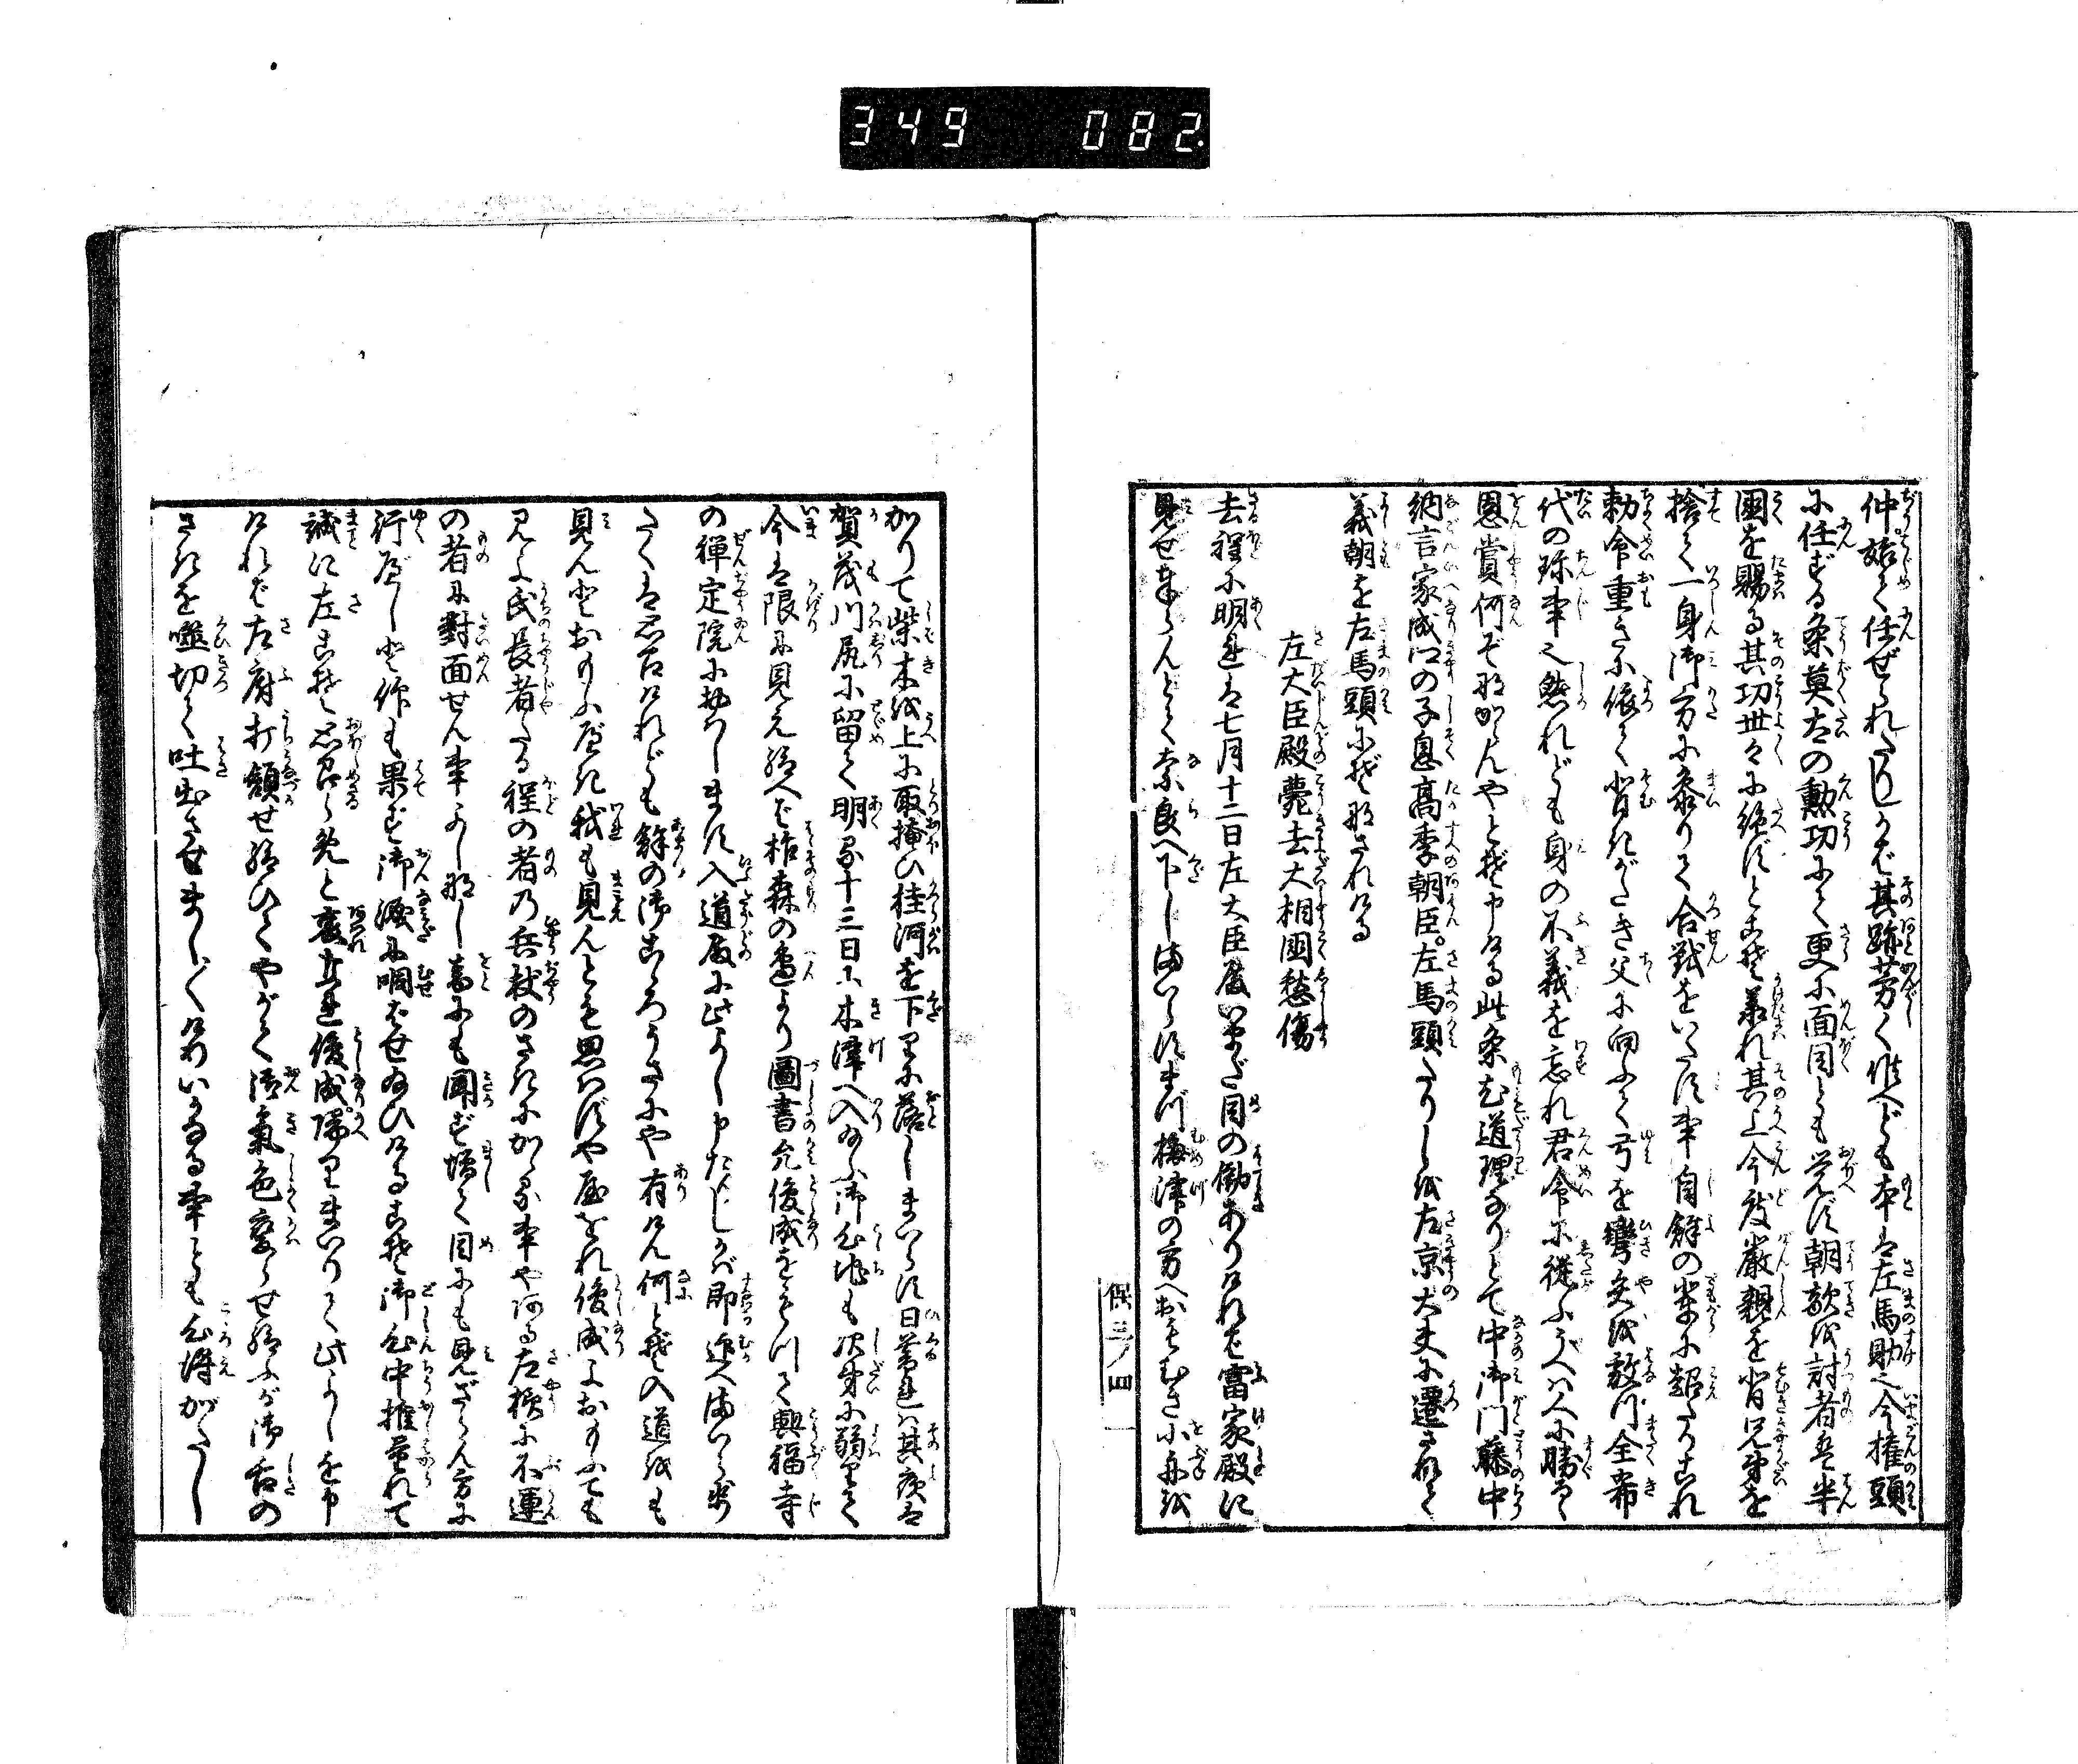 349 082.
仲始て任ぜられたりしかば其跡芳く候へども本は左馬助也今権頭
に任ずる条莫太の勲功にて更に面目とも覚ず朝敵を討者は半
國を賜る其功世々に絶ずとこそ承れ其上今度嚴親を背兄弟を
捨て一身御方に参りて合戰をいたす事自餘の輩に超たりこれ
勅命重きに依て背きがたき父に向ふて弓を彎矢を放つ全希
代の珎事也然れども身の不義を忘れ君命に従ふうへハ人に勝るゝ
恩賞何ぞなからんやとぞ申ける此条尤道理なりとて中御門藤中
納言家成卿の子息髙季朝臣左馬頭たりしを左京大夫に遷されて
義朝を左馬頭にぞなされける
左大臣殿薨去大相國愁傷
去程に明れは七月十二日左大臣殿いまだ目の働ありければ富家殿に
見せ奉らんとて奈良へ下しまいらすまづ梅津の方へおもむき小舟を
保三ノ四
かりて柴木を上に取掩ひ桂河を下りに落しまいらす日暮れハ其夜は
賀茂川尻に留て明る十三日に木津へ入給ふ御心地も次第に弱りて
今は限に見え給へば柞森の邉より圖書允俊成をもつて興福寺
の禅定院におはします入道殿に此よし申たりしかバ即迎へまいらせ
たくは思召けれども餘の御こゝろうさにや有けん何とぞ入道をも
見んとおもふべき我も見んとも思はずや屋をれ俊成よおもふても
見よ氏長者たる程の者乃兵杖のさきにかゝる事や何る左様に不運
の者に對面せん事よしなし音にも聞ず増て目にも見ざらん方に
行べしと仰も果ず御涙に咽ばせ給ひけるこそ御心中推量れて
誠に左こそ思召らめと哀なれ俊成帰りまいりて此よしを申
ければ左府打頷せ給ひてやがて御氣色変らせ給ふが御舌の
さきを噬切て吐出させまし〳〵けりいかなる事とも心得がたし